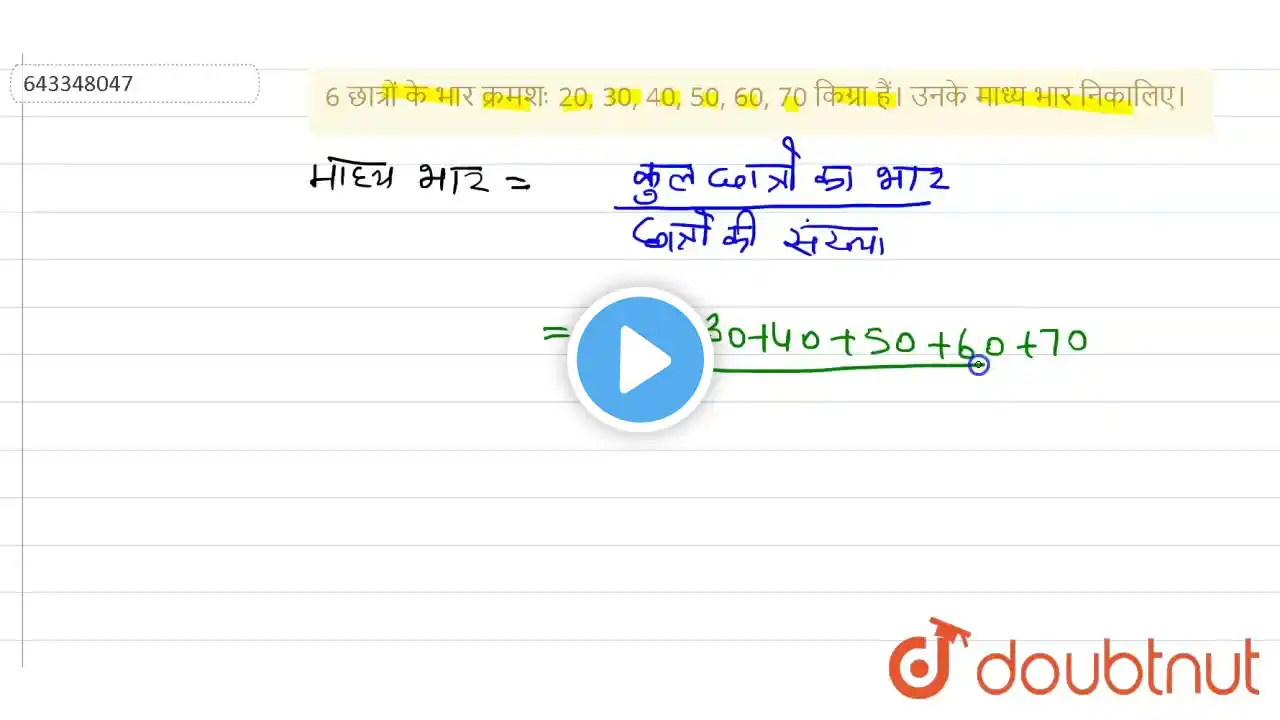 643348047
6 छात्रों के भार क्रमशः 20, 30, 40, 50, 60, 70 किग्रा हैं। उनके माध्य भार निकालिए।
माध्य भार = कुल छात्रों का भार
छात्रों की संख्या
= 30+40+50+60+70
doubtnut